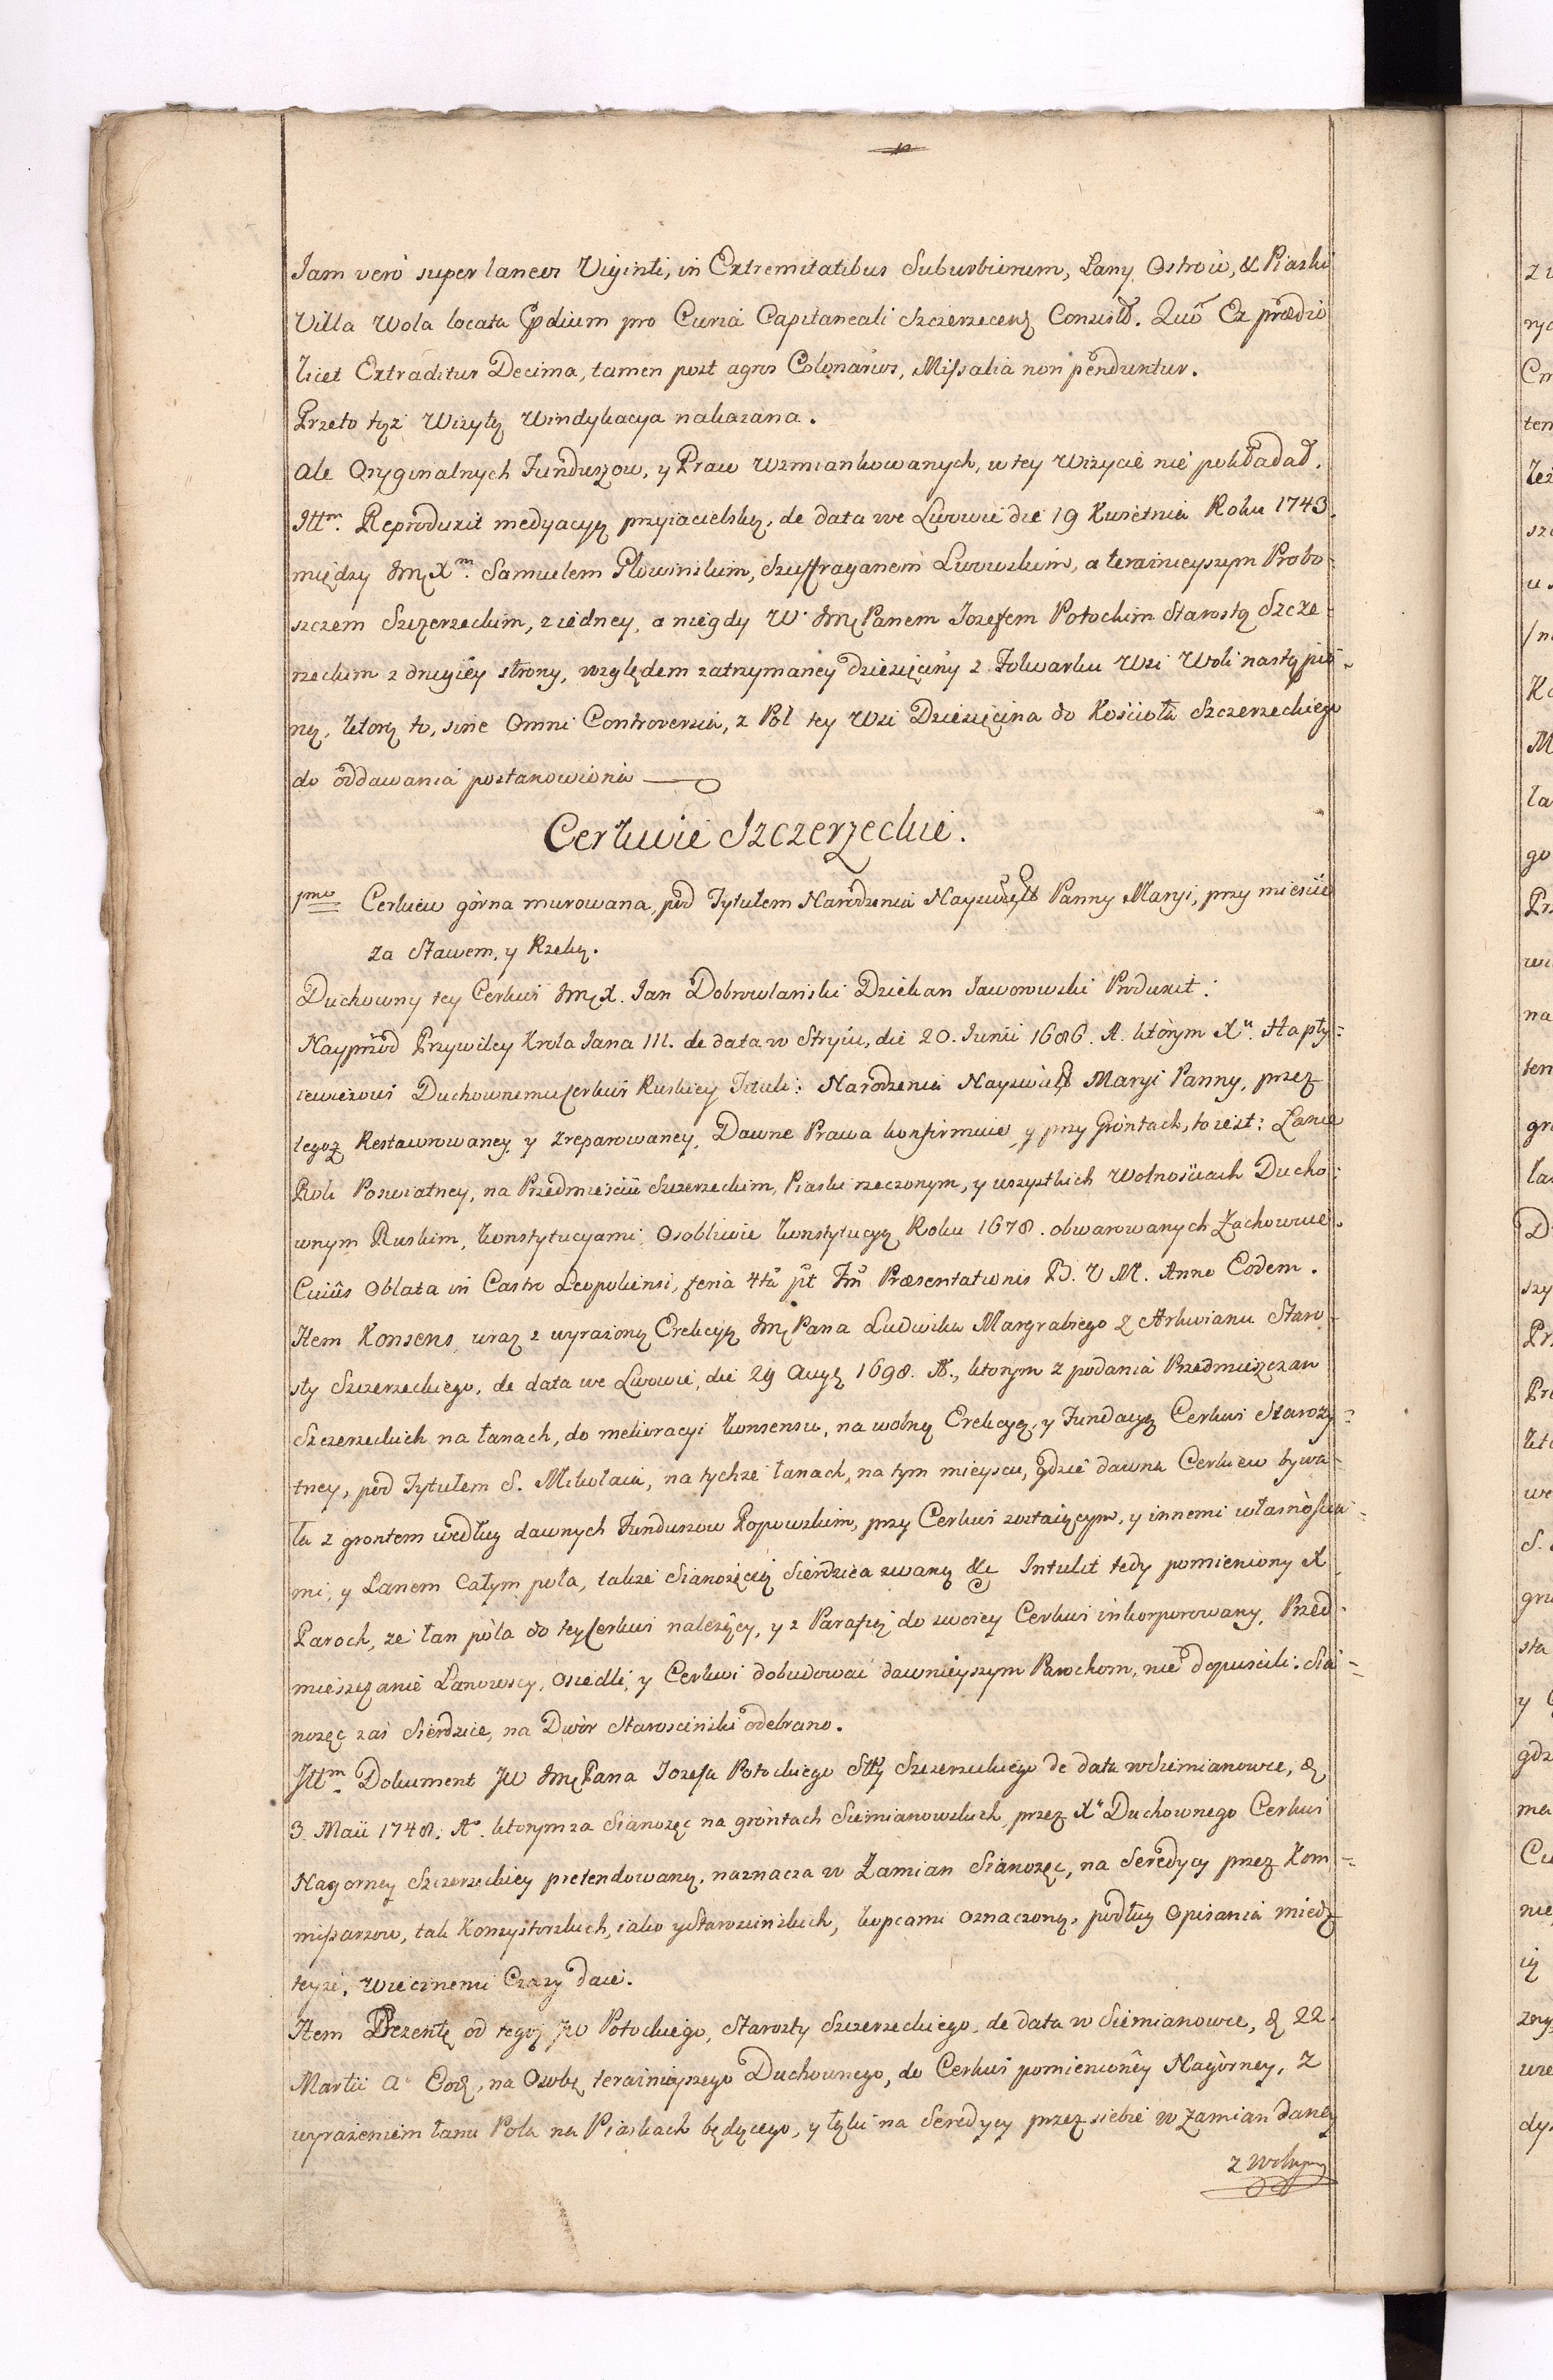 Jam vero super laneos Viginti, in Extremitatibus Suburbiorum, Łany Ostrow, & Piaski
Villa Wola locata Prædium pro Curia Capitaneali Szczerzecens Consistt. Quō Ex prædio
licet Extraditur Decima, tamen post agros Colonarios, Missalia non penduntur.
Przeto tęż Wizytę Windykacya nakazana.
Ale Oryginalnych Funduszow, y Praw wzmiankowanych, w tey Wizycie nie pokładał.
Ittm. Reproduxit medyacyą przyiacielską, de data we Lwowie die 19 Kwietnia Roku 1743.
między Jmę Xm. Samuelem Głowinskim, Szuffraganem Lwowskim, a teraznieyszym Probo-
szczem Szczerzeckim, z iedney, a niegdy W. Jmę Panem Jozefem Potockim Starostą Szcze-
rzeckim z drugiey strony, względem zatrzymaney dziesięciny z Folwarku Wsi Woli nastąpio-
ną, ktorą to, sine Omni Controversia, z Pol tey Wsi Dziesięcina do Kościoła Szczerzeckiego
do oddawania postanowiona
Cerkwie Szczerzeckie.
pmo Cerkiew górna murowana, pod Tytułem Narodzenia Nayświętt Panny Maryi, przy mieście
za Stawem, y Rzeką.
Duchowny tey Cerkwi Jmę X. Jan Dobrowlański Dziekan Jaworowski Produxit:
Nayprzod Przywiley Krola Jana III. de data w Stryiu, die 20. Junii 1686. A. ktorym Xu. Hapty-
iewiczowi Duchownemu Cerkwi Ruskiey Tituli: Narodzenia Nayswiętt Maryi Panny, przez
tegoż Restawrowaney, y zreparowaney, Dawne Prawa konfirmuie, y przy Grontach, to iest: Łanie
Roli Poswiatney, na Przedmieściu Szczerzeckim, Piaski rzeczonym, y wszystkich Wolnościach Ducho-
wnym Ruskim, konstytucyami, Osobliwie konstytucyą Roku 1678. obwarowanych Zachowuie.
Cuius Oblata in Castro Leopoliensi, feria 4ta pt Fm Præsentationis B. V M. Anno Eodem.
Item Konsens, wraz z wyrażoną Erekcyą Jmę Pana Ludwika Margrabiego z Arkwianu Staro-
sty Szczerzeckiego, de data we Lwowie, die 29 Aug 1698. A., ktorym z podania Przedmieszczan
Szczerzeckich na łanach, do melioracyi konsensu, na wolną Erekcyą, y Fundacyą Cerkwi Starozy-
tney, pod Tytułem S. Mikołaia, na tychże łanach, na tym mieyscu, gdzie dawna Cerkiew bywa-
ła z grontem według dawnych Funduszow Popowskim, przy Cerkwi zostaiącym, y innemi własnościa-
mi, y Łanem Całym pola, także Sianożęcią Sierdzica zwaną &c Intulit tedy pomieniony X.
Paroch, że łan pola do tey Cerkwi należący, y z Parafią do swoiey Cerkwi inkorporowany, Przed-
mieszczanie Łanowscy, osiedli, y Cerkwi dobudować dawnieyszym Parochom, nie dopuścili: Sia-
nożęc zaś Sierdzice, na Dwór Starosciński odebrano.
Ittm Dokument JW Jmę Pana Jozefa Potockiego Sttj Szczerzeckiego de data w Siemianowce, d.
3. Maii 1748. Ao. ktorym za Sianożęc na gróntach Siemianowskich, przez Xa Duchownego Cerkwi
Nagorney Szczerzeckiey pretendowaną, naznacza w Zamian Sianożęc, na Seredycy przez Kom-
missarzow, tak Konsystorskich, iako y Starościnskich, kopcami oznaczoną, podług Opisania miedz
teyże, wiecznemi Czasy daie.
Item Prezentę od tegoż JW Potockiego, Starosty Szczerzeckiego, de data w Siemianowce, d. 22.
Martii Ao Eod, na Osobę teraznieyszego Duchownego, do Cerkwi pomienioney Nagórney, z
wyrażeniem łanu Pola na Piaskach będącego, y łąki na Seredycy przez siebie w zamian daney
z Wolnym